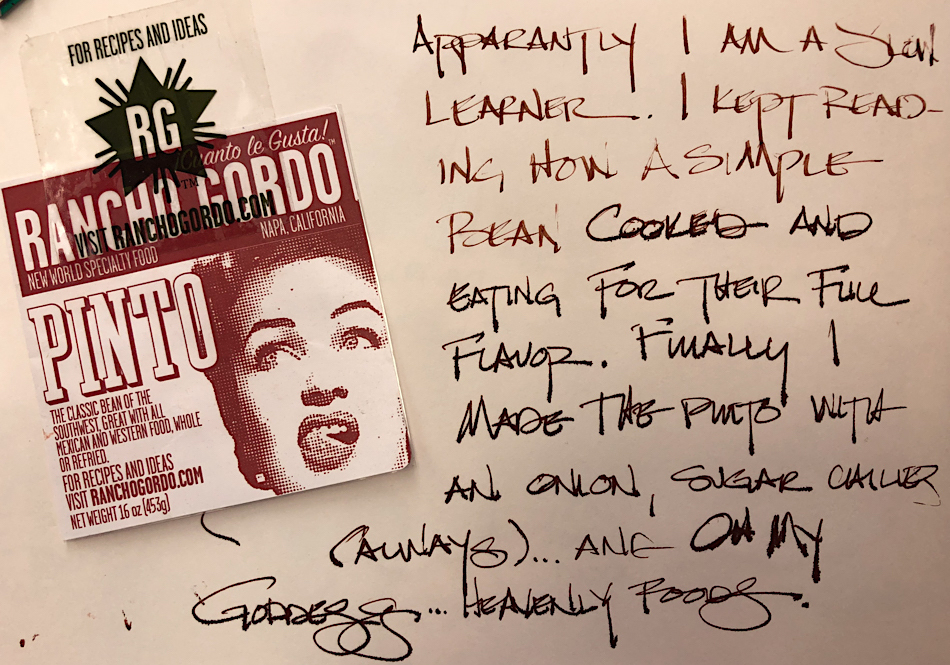 FOR RECIPES AND IDEAS
RG
TM
VISIT RANCHOGORDO.COM
¡Cuanto le Gusta!
RANCHO GORDO™
NAPA, CALIFORNIA
NEW WORLD SPECIALTY FOOD
PINTO
THE CLASSIC BEAN OF THE
SOUTHWEST, GREAT WITH ALL
MEXICAN AND WESTERN FOOD, WHOLE
OR REFRIED.
FOR RECIPES AND IDEAS
VISIT RANCHOGORDO.COM
NET WEIGHT 16 oz (453g)
APPARANTLY I AM A SLOW
LEARNER. I KEPT READ-
ING HOW A SIMPLE
BEAN COOKED AND
EATING FOR THEIR FULL
FLAVOR. FINALLY I
MADE THE PINTO WITH
AN ONION, SUGAR CHILIES
(ALWAYS)... AND OH MY
GODDESS... HEAVENLY FOODS.